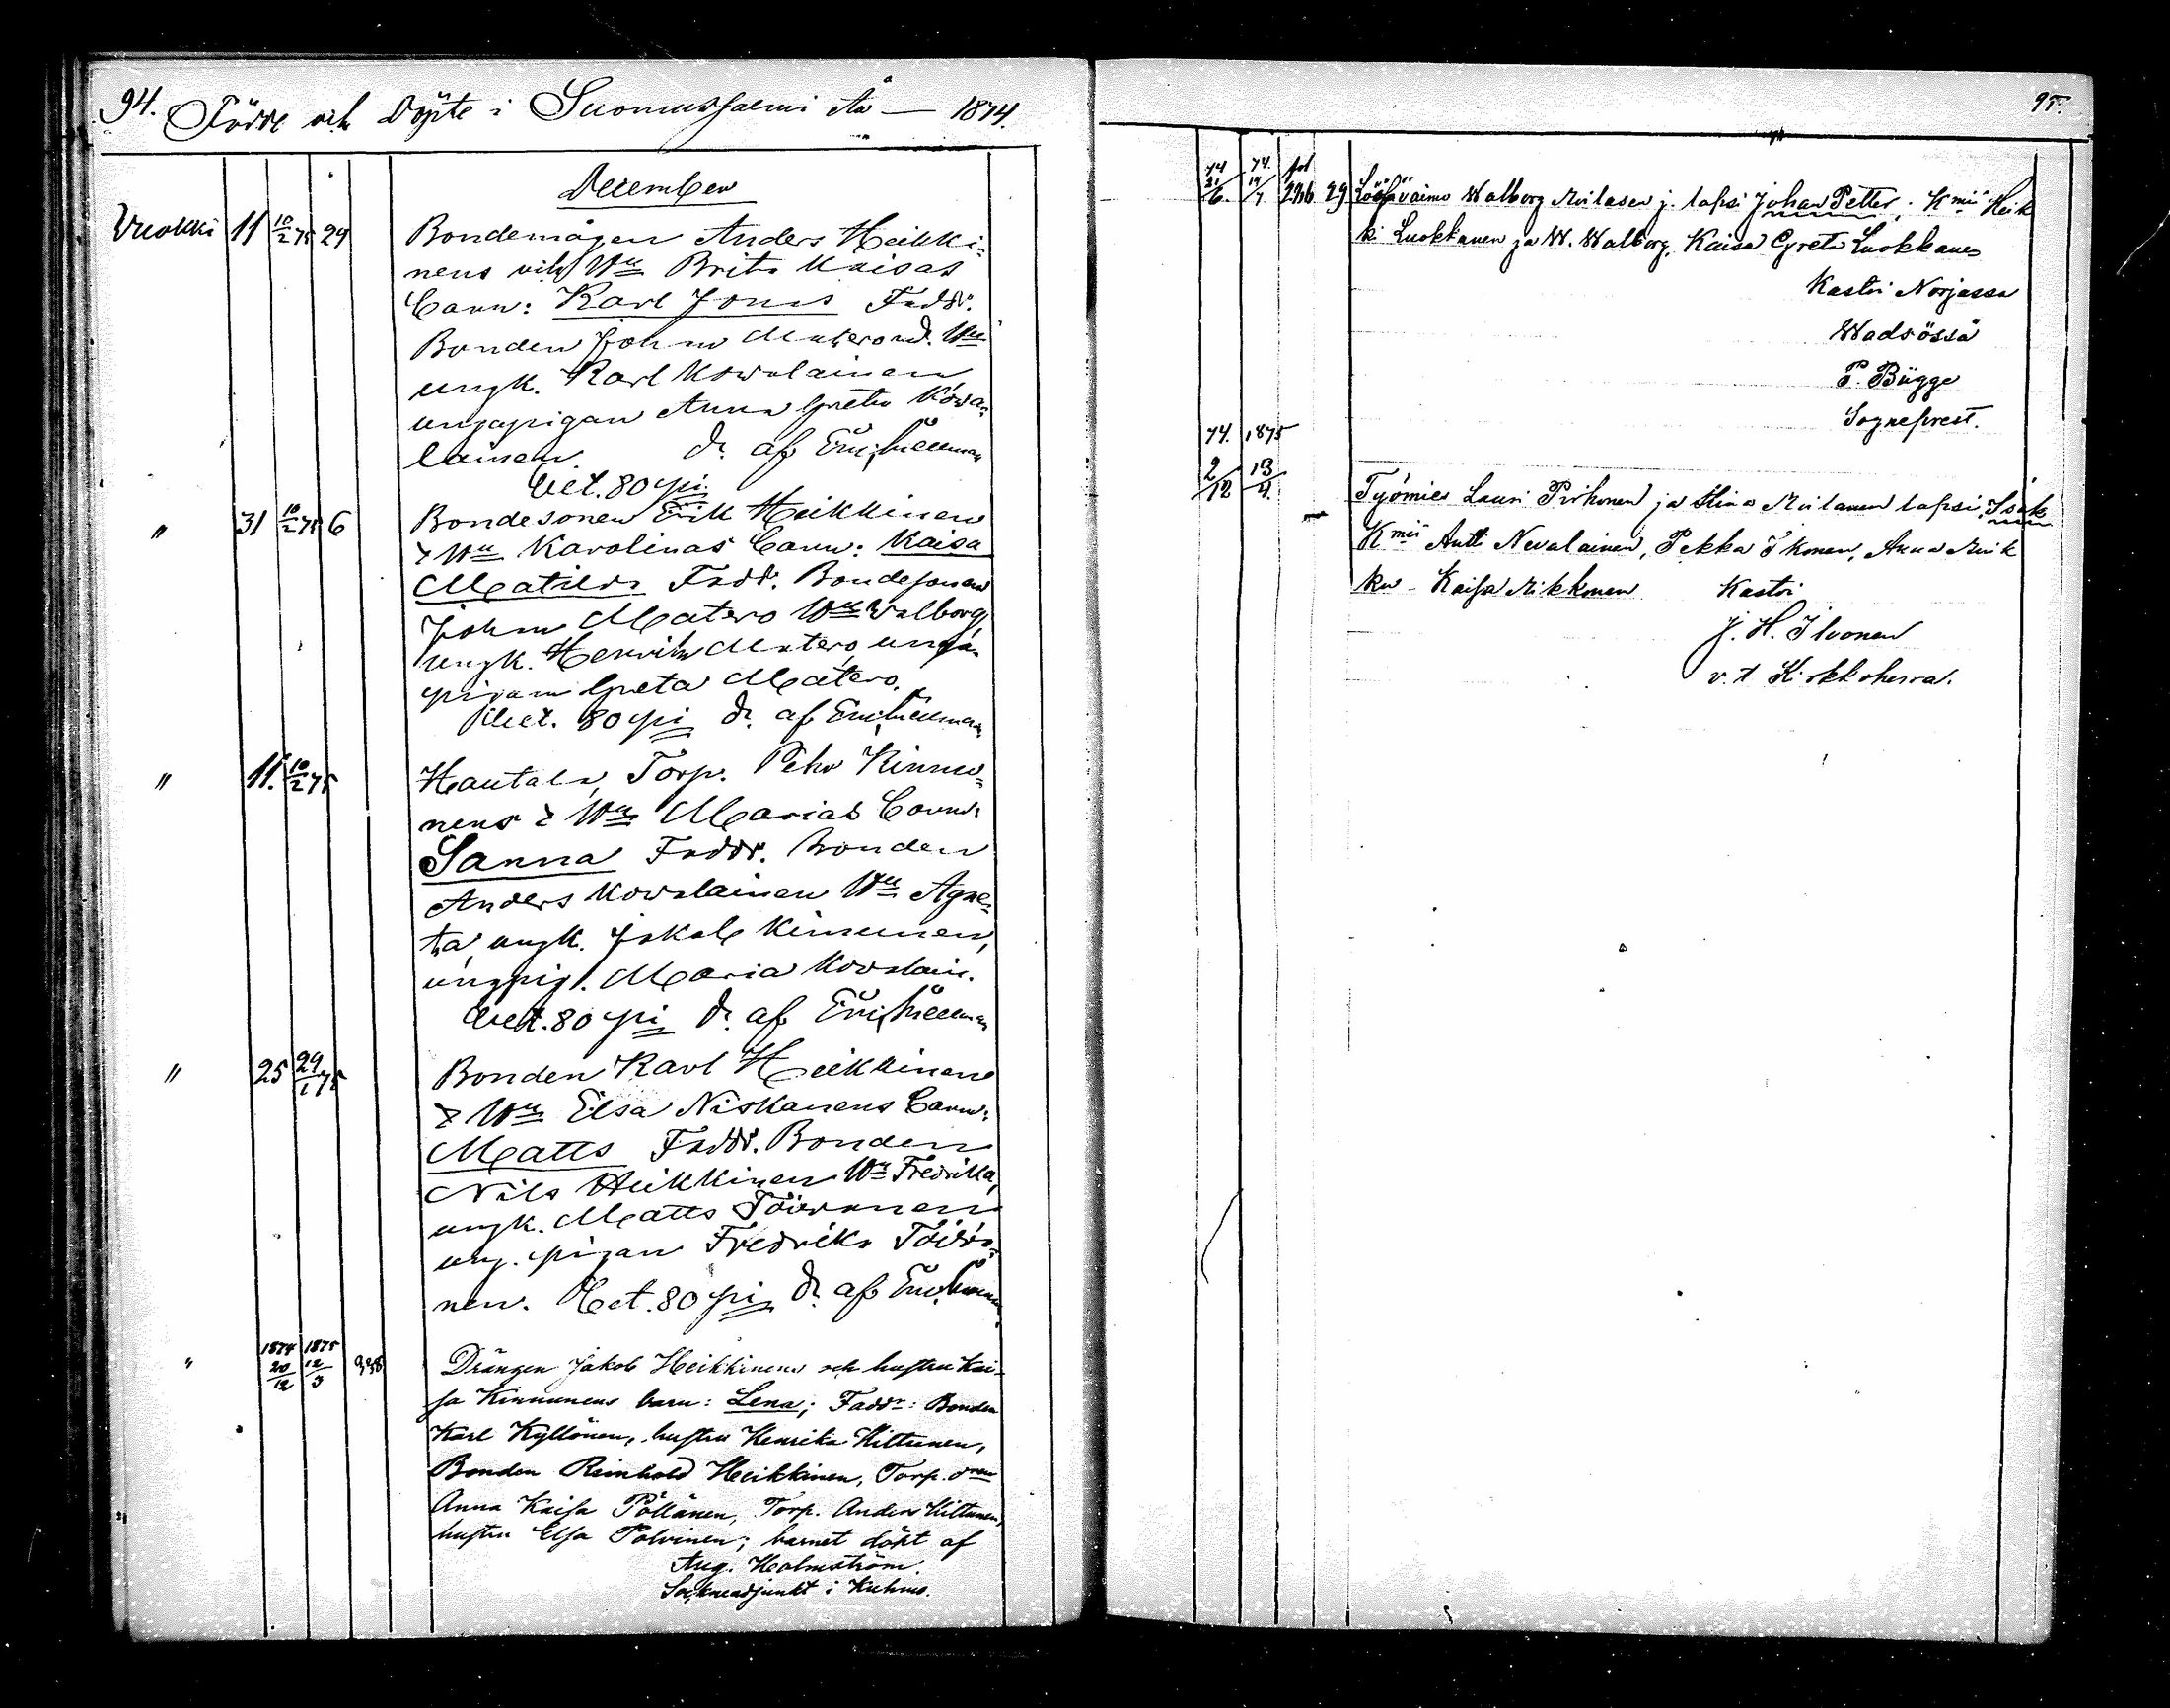 94. Födde och Döpte i Suomussalmi År — 1874.
December
Vuokki 11 10/2 75 29 Bondemågen Anders Heikki=
nens och Hu Brita Kaisas
Barn: Karl Jonas Faddr.
Bonden Johan Matero d. Hu
ungk. Karl Kowalainen
ungapigan Anna Greta Kowa=
lainen. d. af
Att. 80 pi
" 31 10/2 75 6 Bondesonen Erik Heikkinen
& Hu Karolinas Barn: Kaisa
Matilda Fadd. Bondesonen
Johan Matero Hu Walborg,
ungk. Henrik Matero, unga=
pigan Greta Matero.
80 pi d. af
" 11. 10/2 75 Hautala, Torp. Pehr Kinnu=
nens & Hu Marias Barn:
Sanna Faddr. Bonden
Anders Kowalainen Hu Agne=
ta, ungk. Jakob Kinnunen,
ungpig. Maria Kovalain.
80 pi d. af
" 25 29/1 75 Bonden Karl Heikkinens
& Hu Elsa Niskanens Barn:
Matts Faddr. Bonden
Nils Heikkinen Hu Fredrika,
ungk. Matts Toivanen
ung. pigan Fredrika Toiva=
nen. 80 pi d. af
" 1874 20/12 1875 12/3 Drängen Jakob Heikkinens och hustru Kai=
sa Kinnunens barn: Lena; Faddr: Bonden
Karl Kyllönen, hustru Henrika Kittunen,
Bonden Reinhold Heikkinen, Torp.
Anna Kaisa Pöllänen, Torp. Anders Kittunen,
hustru Elsa Polvinen; barnet döpt af
Aug. Holmström.
Sockneadjunkt i Kuhmo.
95.
74 21/6. 74. 14/7 fol 226 29 Walborg Moilasen j. lapsi Johan Petter; Kmit Heik
ki Luokkanen ja W. Walborg, Kaisa Greta Luokkanen
Kastoi Norjassa
Wadsössä
P. Bügge
Sogneprest.
74. 2/12 1875 13/4 Työmies Lauri Pirhonen ja Stina Moilanen lapsi Isak
Kmit Antti Nevalainen, Pekka Ikonen, Anna
Kaisa Mikkonen Kastoi
J. H. Ilvonen
v. t Kirkkoherra.